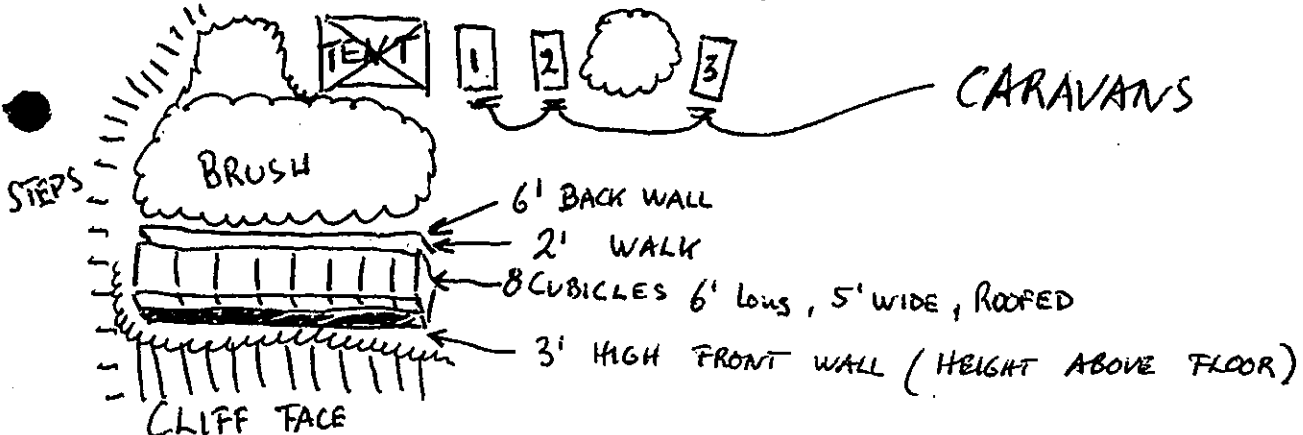 TENT
1 2 3
CARAVANS
BRUSH
STEPS
6' BACK WALL
2' WALK
8 CUBICLES 6' Long, 5' WIDE, ROOFED
3' HIGH FRONT WALL (HEIGHT ABOVE FLOOR)
CLIFF FACE